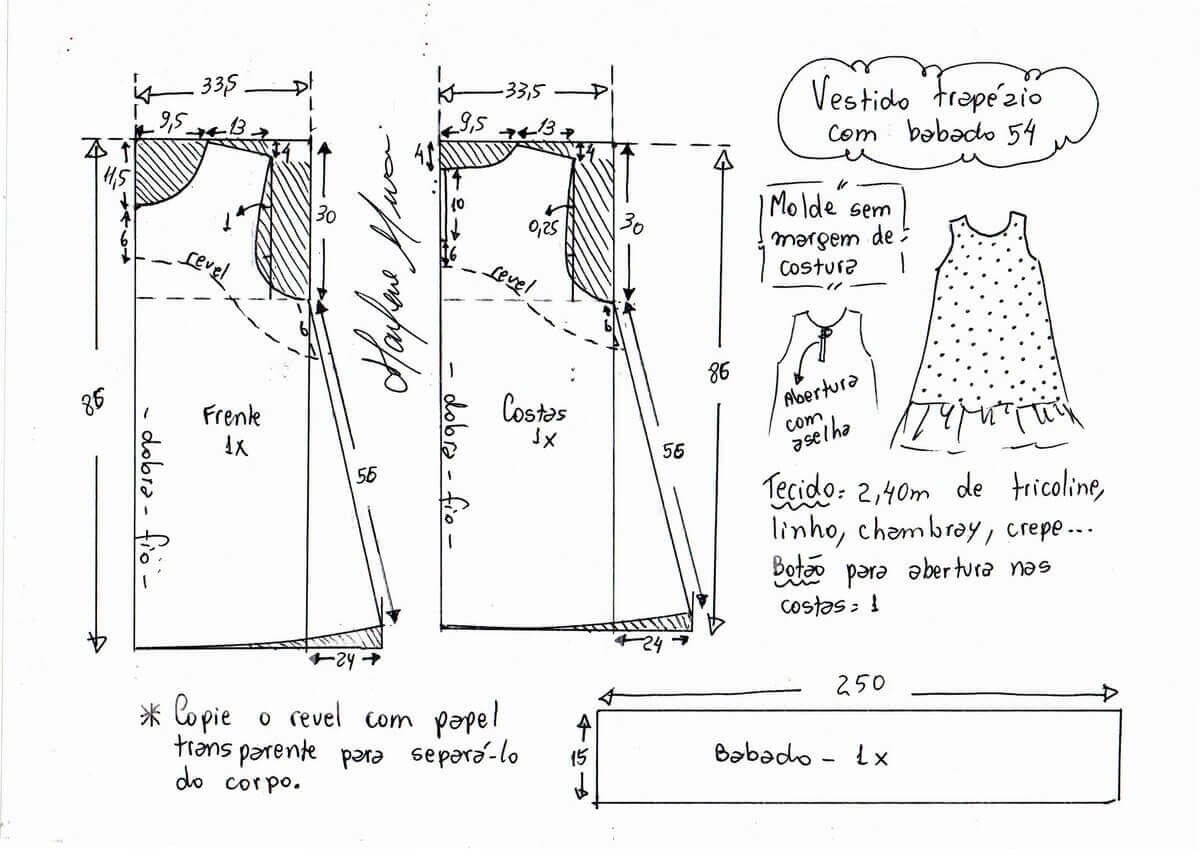 33,5
9,5
13
4
11,5
6
1
30
revel
6
86
Frente
1x
- dobra - fio -
24
33,5
9,5
13
4
4
10
6
0,25
30
revel
6
86
Costas
1x
- dobra - fio -
24
Vestido trapézio
com babado 54
Molde sem
margem de
costura
Abertura
com
aselha
Tecido: 2,40m de tricoline,
linho, chambray, crepe...
Botão para abertura nas
costas = 1
* Copie o revel com papel
transparente para separá-lo
do corpo.
250
15
Babado - 1x